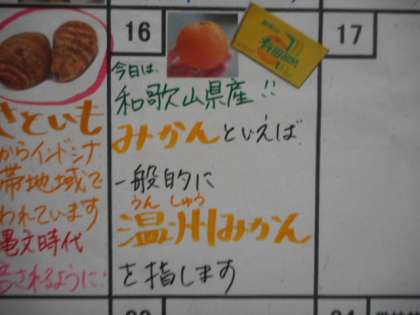 16
17
今日は
和歌山県産!!
みかんといえば
一般的に
うんしゅう
温州みかん
を指します
さといも
からインドシナ
帯地域で
われています
縄文時代
されるように